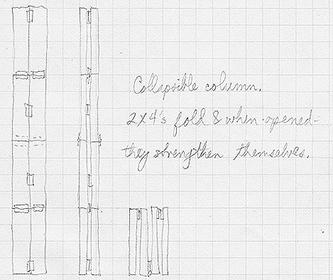 Collapsible column.
2x4's fold & when opened-
they strengthen themselves.